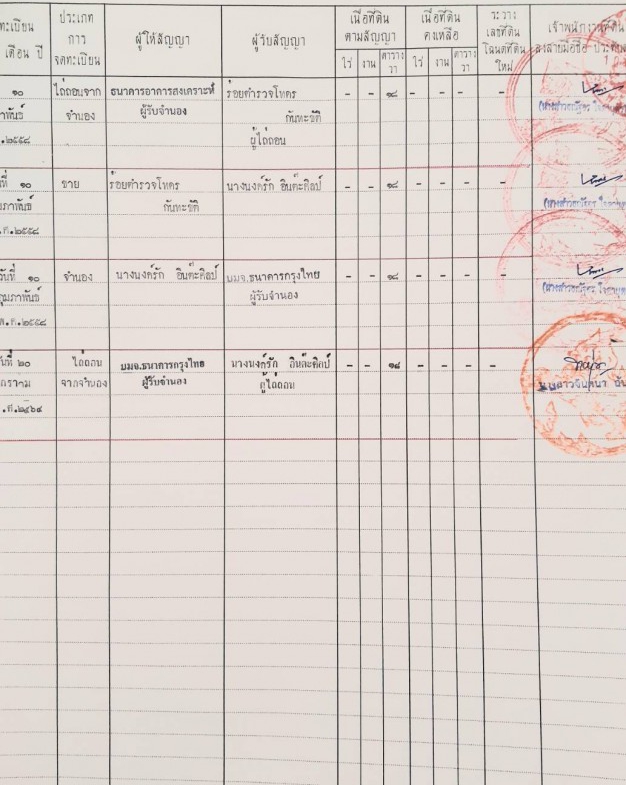 ทะเบียน
เดือน ปี
ประเภท
การ
จดทะเบียน
ผู้ให้สัญญา
ผู้รับสัญญา
เนื้อที่ดิน
ตามสัญญา
ไร่ งาน ตาราง
วา
เนื้อที่ดิน
คงเหลือ
ไร่ งาน ตาราง
วา
ระวาง
เลขที่ดิน
โฉนดที่ดิน
ใหม่
เจ้าพนักงานที่ดิน
ลงลายมือชื่อ ประทับ
๑๐ ไถ่ถอนจาก ธนาคารอาคารสงเคราะห์ ร้อยตำรวจโท - - ๑๘ - - - -
จำนอง ผู้รับจำนอง กันทะชัติ
.๒๕๕๔ ผู้ไถ่ถอน
ที่ ๑๐ ขาย ร้อยตำรวจโท นางนงค์รัก อินต๊ะศิลป์ - - ๑๘ - - - -
มภาพันธ์ กันทะชัติ
.ศ.๒๕๕๔
วันที่ ๑๐ จำนอง นางนงค์รัก อินต๊ะศิลป์ บมจ.ธนาคารกรุงไทย - - ๑๘ - - - -
กุมภาพันธ์ ผู้รับจำนอง
พ.ศ.๒๕๕๔
วันที่ ๒๐ ไถ่ถอน บมจ.ธนาคารกรุงไทย นางนงค์รัก อินต๊ะศิลป์ - - ๑๘ - - - -
จากจำนอง ผู้รับจำนอง ผู้ไถ่ถอน
.ศ.๒๕๖๔